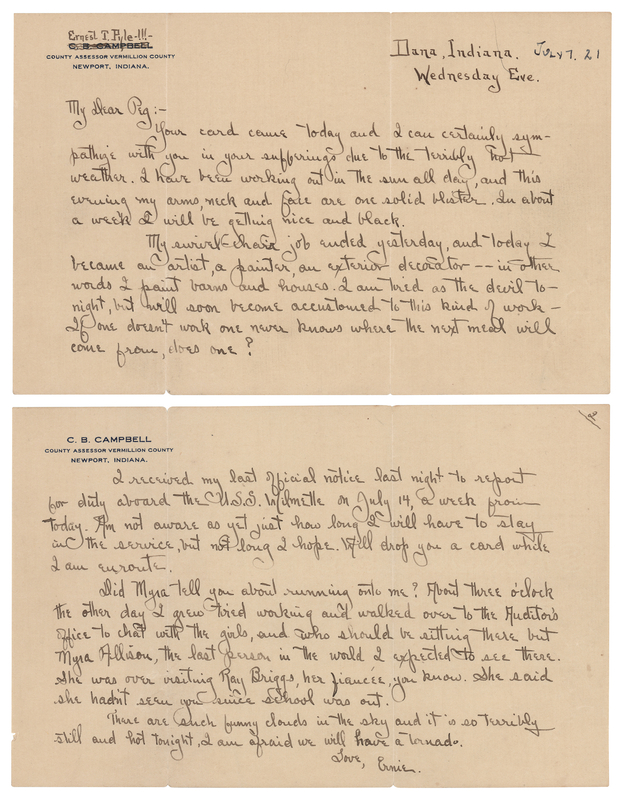 Ernest T. Pyle-!!!-
C. B. CAMPBELL
COUNTY ASSESSOR VERMILLION COUNTY
NEWPORT, INDIANA.
Dana, Indiana. July 7. 21
Wednesday Eve.
My Dear Peg:-
Your card came today and I can certainly sym-
pathize with you in your sufferings due to the terribly hot
weather. I have been working out in the sun all day, and this
evening my arms, neck and face are one solid blister. In about
a week I will be getting nice and black.
My swivel-chair job ended yesterday, and today I
became an artist, a painter, an exterior decorator -- in other
words I paint barns and houses. I am tired as the devil to-
night, but will soon become accustomed to this kind of work -
If one doesn't work one never knows where the next meal will
come from, does one?
C. B. CAMPBELL
COUNTY ASSESSOR VERMILLION COUNTY
NEWPORT, INDIANA.
I received my last official notice last night to report
for duty aboard the U.S.S. Wilmette on July 14, a week from
today. Am not aware as yet just how long I will have to stay
in the service, but not long I hope. Will drop you a card while
I am enroute.
Did Myra tell you about running onto me? About three o'clock
the other day I grew tired working and walked over to the Auditor's
office to chat with the girls, and who should be sitting there but
Myra Allison, the last person in the world I expected to see there.
She was over visiting Ray Briggs, her fiancée, you know. She said
she hadn't seen you since school was out.
There are such funny clouds in the sky and it is so terribly
still and hot tonight, I am afraid we will have a tornado.
Love,
Ernie.